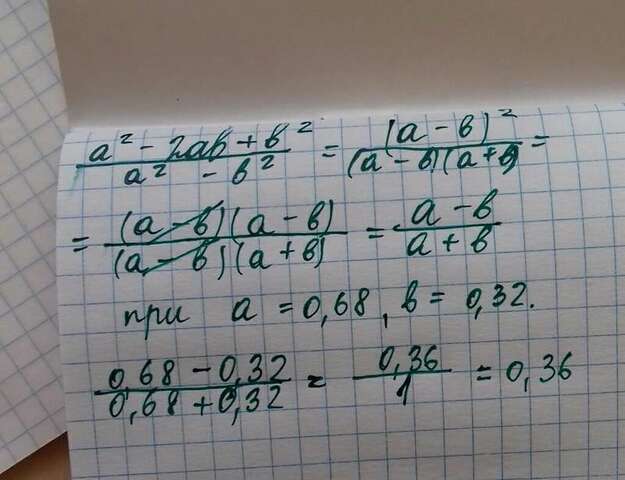 a² - 2ab + b² / a² - b² = (a - b)² / (a - b)(a + b) =
= (a - b)(a - b) / (a - b)(a + b) = a - b / a + b
при a = 0,68, b = 0,32.
0,68 - 0,32 / 0,68 + 0,32 = 0,36 / 1 = 0,36